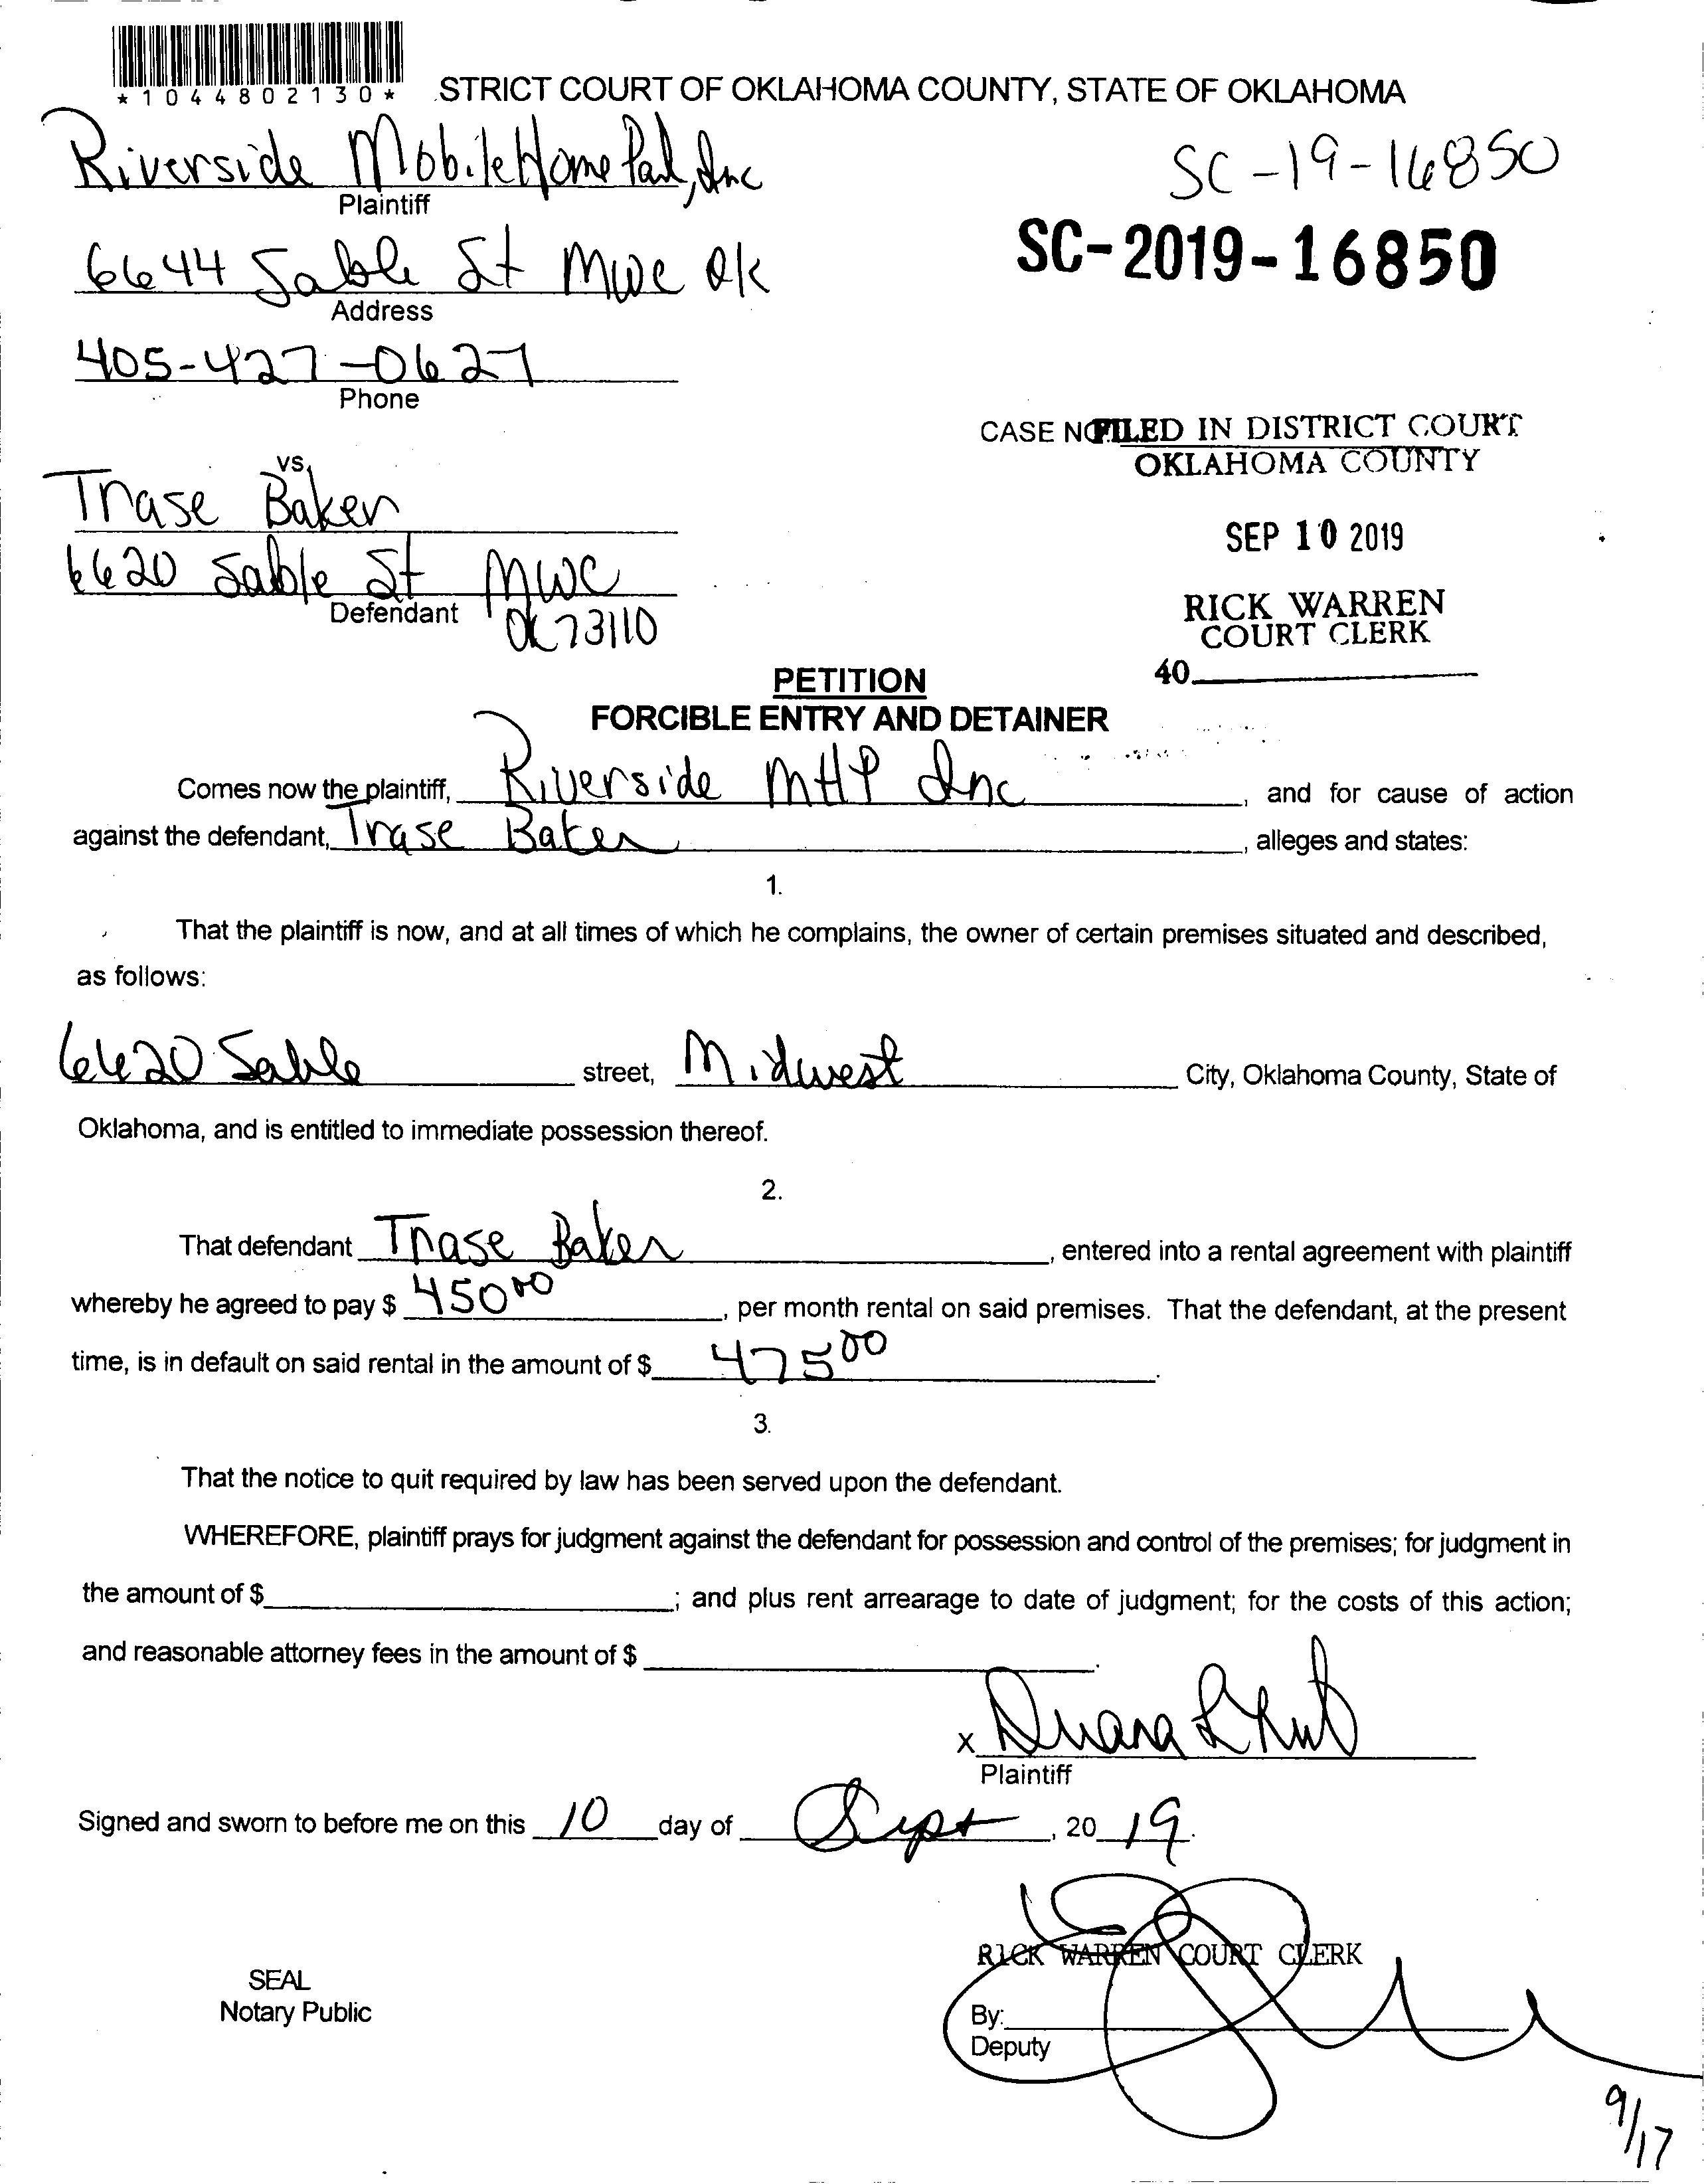 *1044802130*
STRICT COURT OF OKLAHOMA COUNTY, STATE OF OKLAHOMA
Riverside Mobile Home Park, Inc
Plaintiff
SC-19-16850
SC-2019-16850
6644 Sable St MWC OK
Address
405-427-0627
Phone
CASE NO FILED IN DISTRICT COURT
OKLAHOMA COUNTY
vs.
Trase Baker
SEP 10 2019
6620 Sable St MWC
Defendant
OK 73110
RICK WARREN
COURT CLERK
40
PETITION
FORCIBLE ENTRY AND DETAINER
Comes now the plaintiff, Riverside MHP Inc, and for cause of action
against the defendant, Trase Baker, alleges and states:
1.
That the plaintiff is now, and at all times of which he complains, the owner of certain premises situated and described,
as follows:
6620 Sable street, Midwest City, Oklahoma County, State of
Oklahoma, and is entitled to immediate possession thereof.
2.
That defendant Trase Baker, entered into a rental agreement with plaintiff
whereby he agreed to pay $ 450 00, per month rental on said premises. That the defendant, at the present
time, is in default on said rental in the amount of $ 475 00.
3.
That the notice to quit required by law has been served upon the defendant.
WHEREFORE, plaintiff prays for judgment against the defendant for possession and control of the premises; for judgment in
the amount of $ ; and plus rent arrearage to date of judgment; for the costs of this action;
and reasonable attorney fees in the amount of $ .
X
Plaintiff
Signed and sworn to before me on this 10 day of Sept, 2019.
RICK WARREN COURT CLERK
SEAL
Notary Public
By:
Deputy
9/17